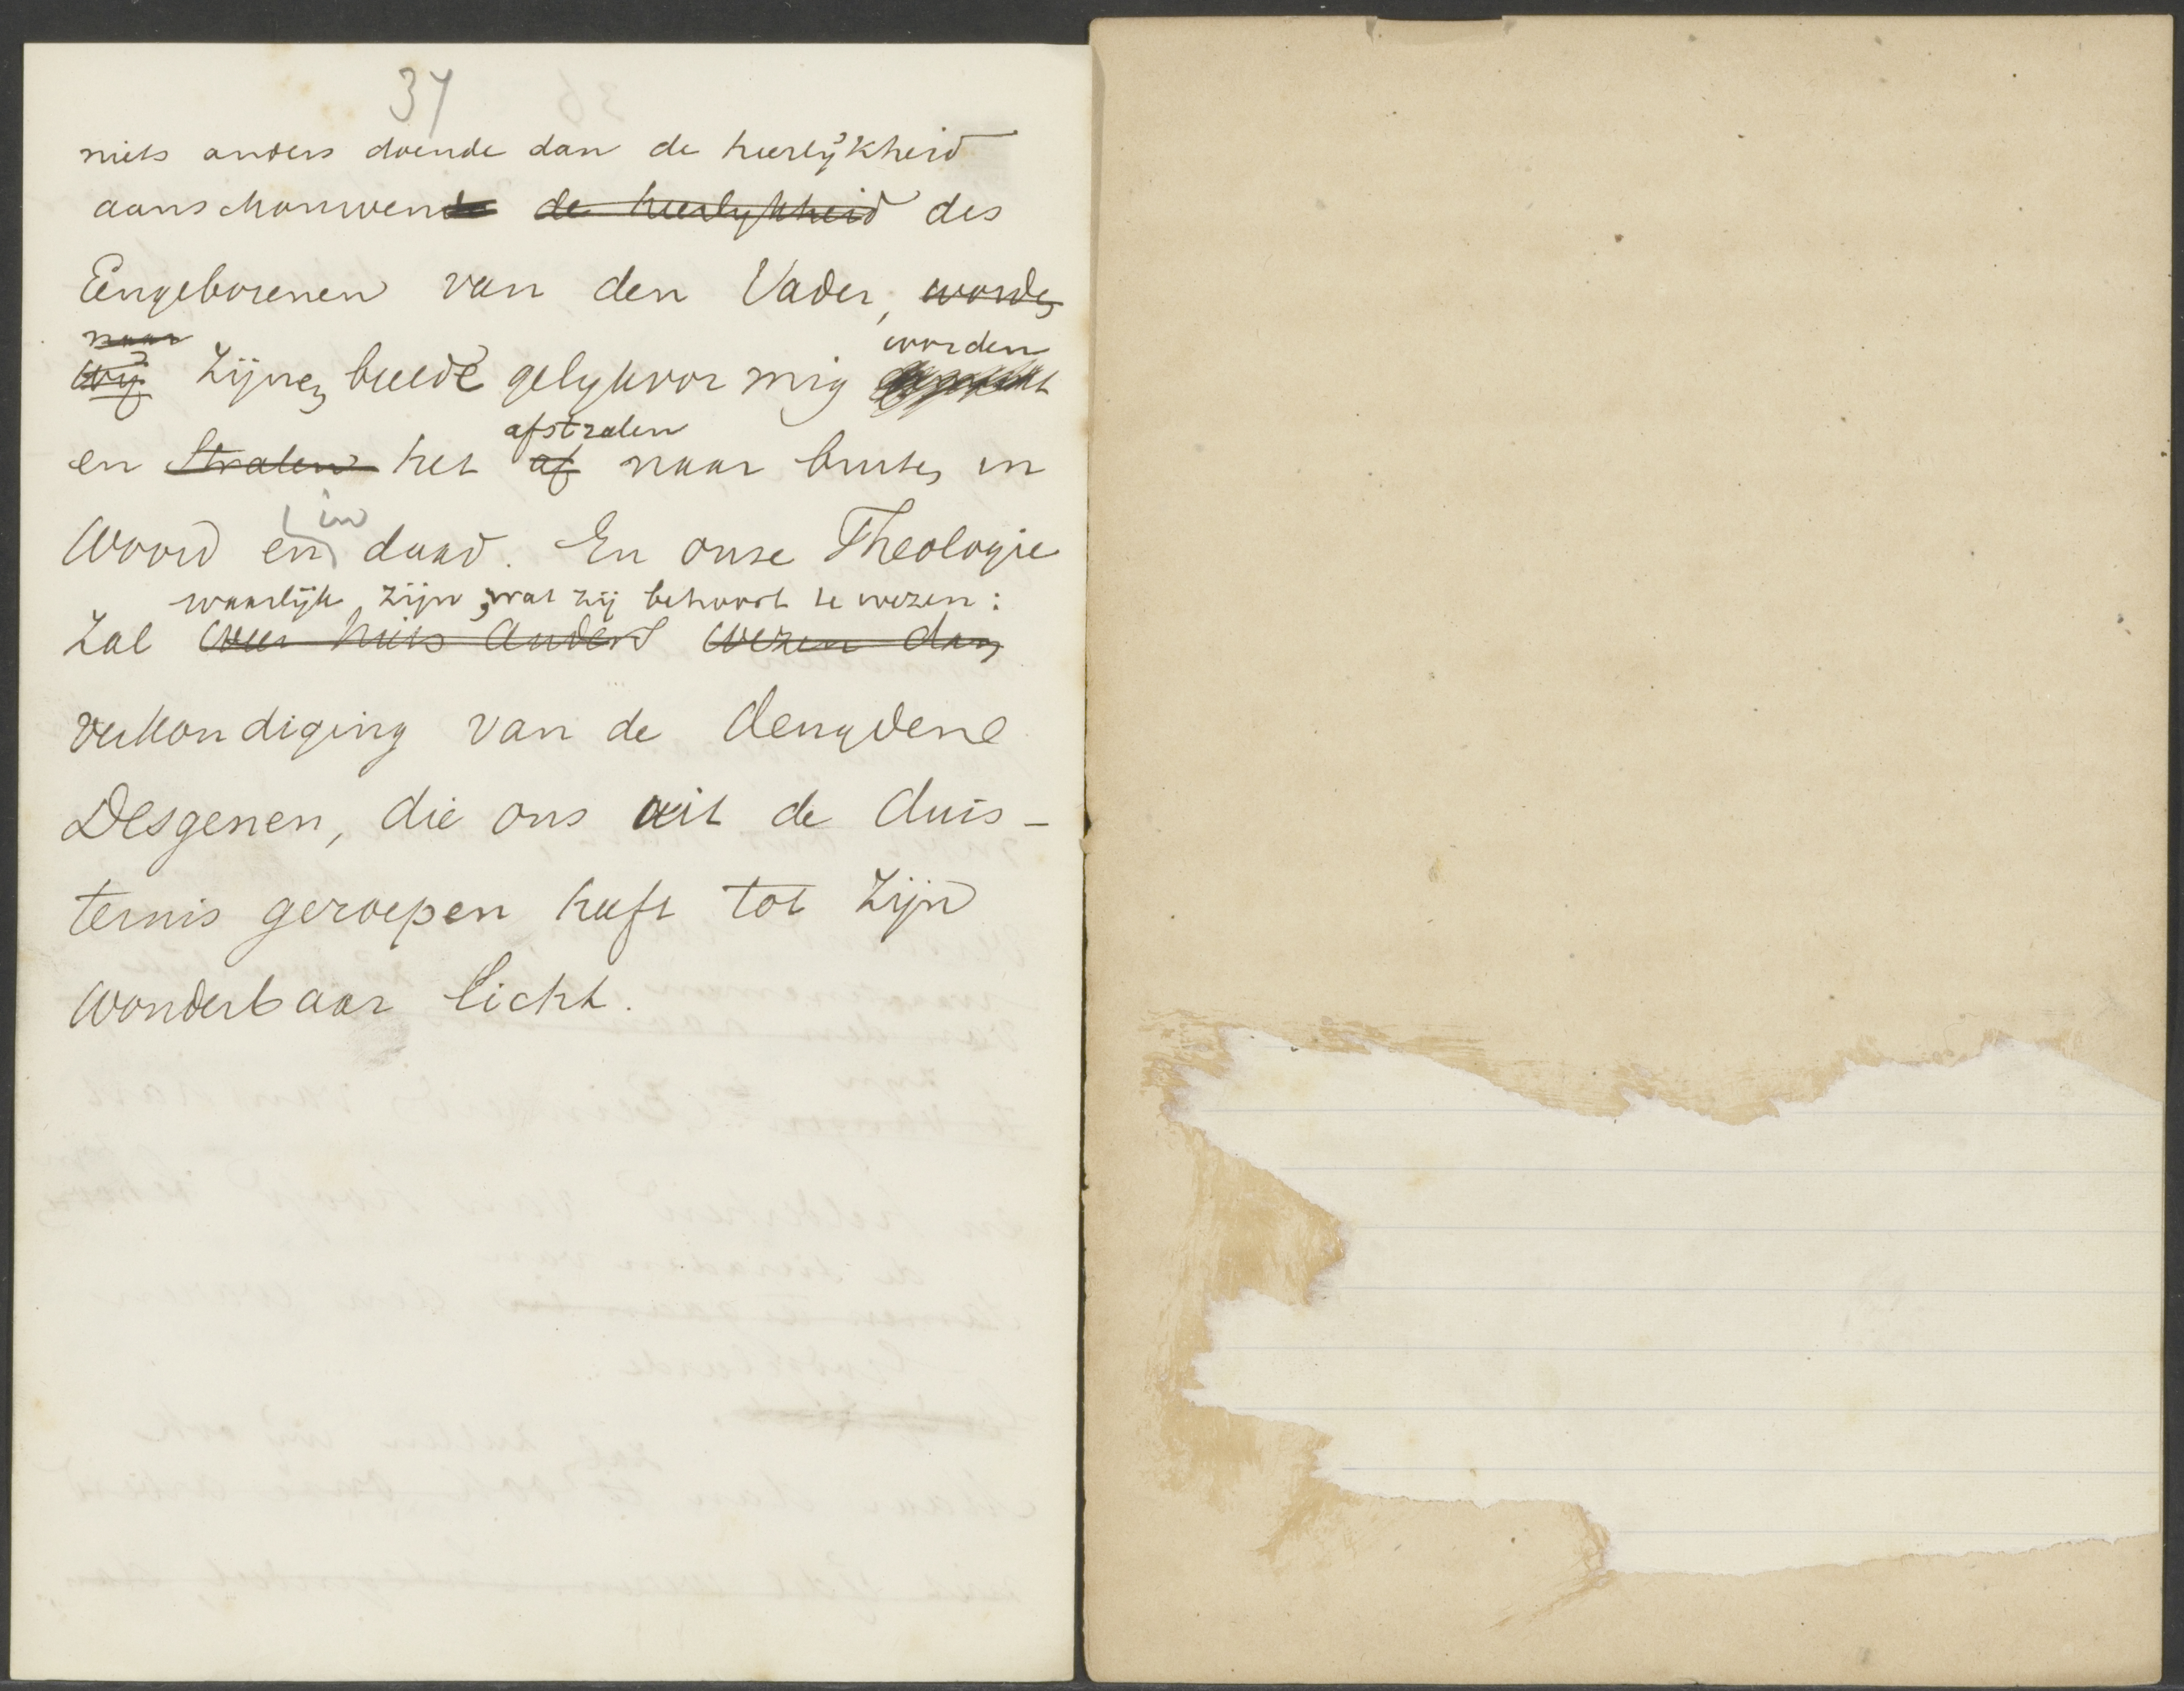 37
niets anders doende dan de heerlijkheid
aanschouwende de heerlijkheid des
Eengeborenen van den Vader, worden
naar worden
wij Zijnen beelde gelykvormig
afstralen
en Stralen het af naar buiten in
in
Woord en daad. En onze Theologie
waarlijk zijn, wat zij behoort te wezen:
Zal weer niets anders wezen dan
verkondiging van de deugdene
Desgenen, die ons uit de duis-
ternis geroepen heeft tot Zijn
wonderbaar licht.